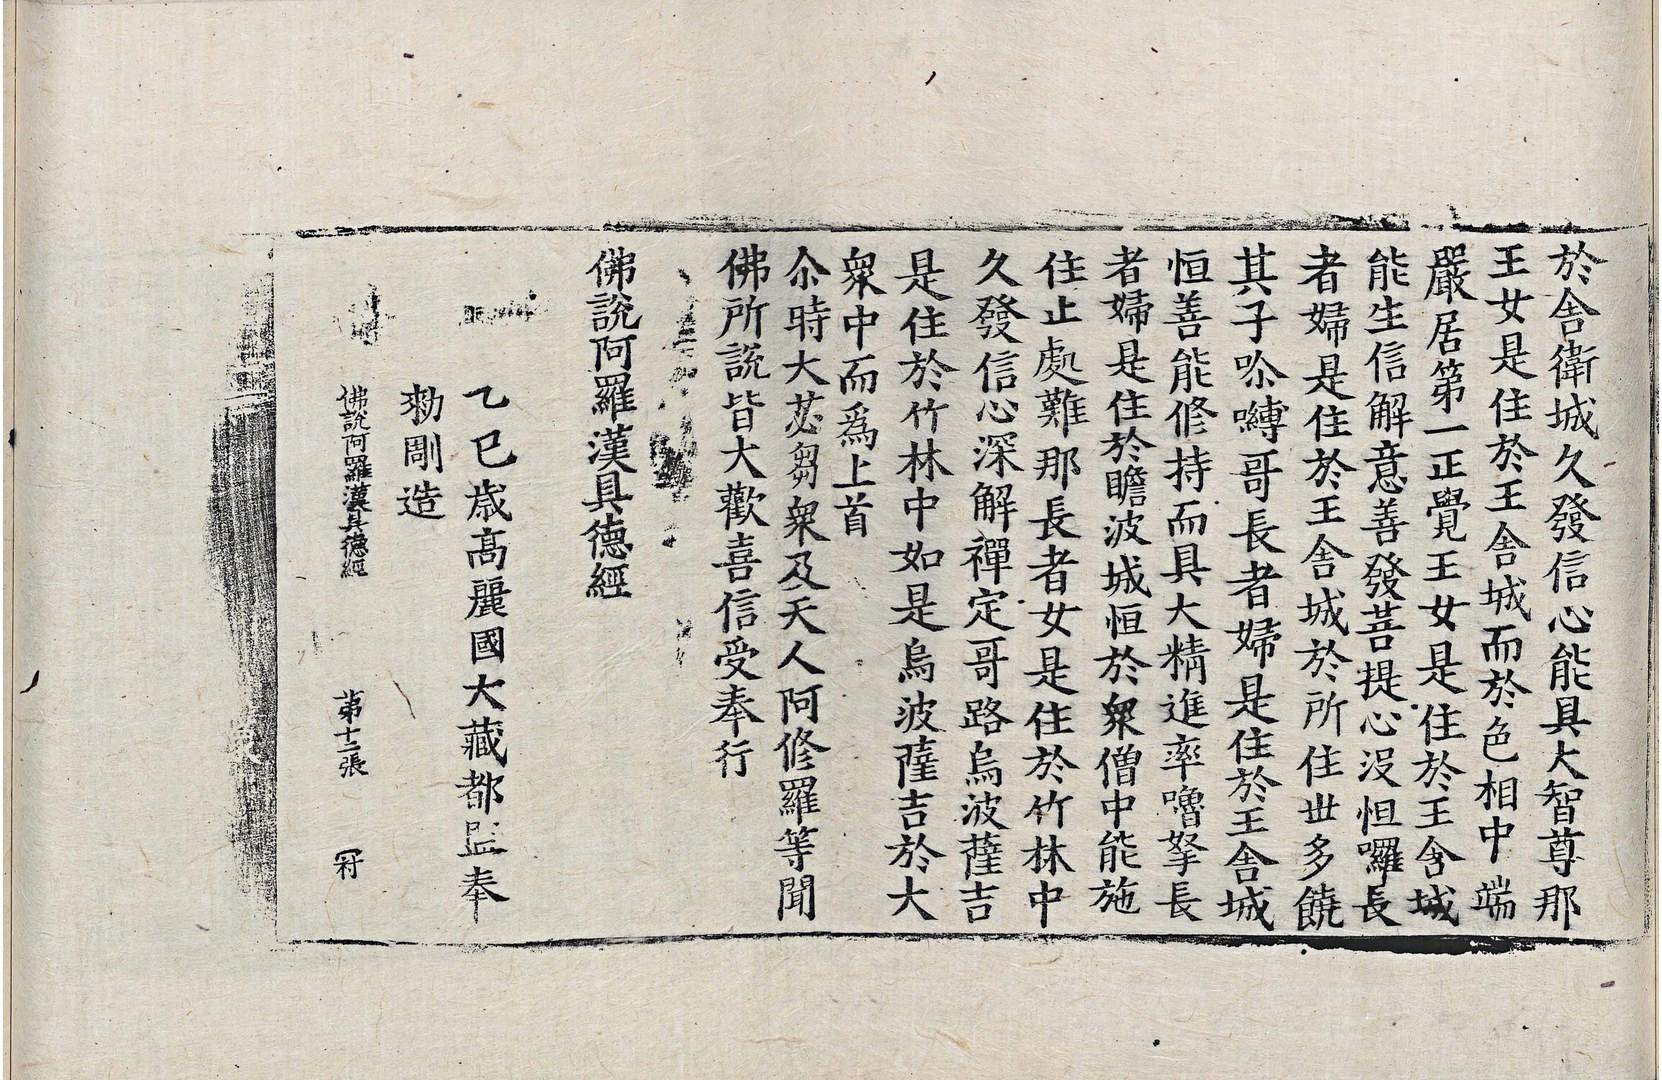 於舍衛城久發信心能具大智尊那
王女是住於王舍城而於色相中端
嚴居第一正覺王女是住於王舍城
能生信解意善發菩提心沒怛囉長
者婦是住於王舍城於所住世多饒
其子㖿嚩哥長者婦是住於王舍城
恒善能修持而具大精進率嚕拏長
者婦是住於瞻波城恒於衆僧中能施
住止處難那長者女是住於竹林中
久發信心深解禪定哥路烏波薩吉
是住於竹林中如是烏波薩吉於大
衆中而爲上首
尒時大苾芻衆及天人阿修羅等聞
佛所說皆大歡喜信受奉行
佛說阿羅漢具德經
乙巳歲高麗國大藏都監奉
勑彫造
佛說阿羅漢具德經 第十二張